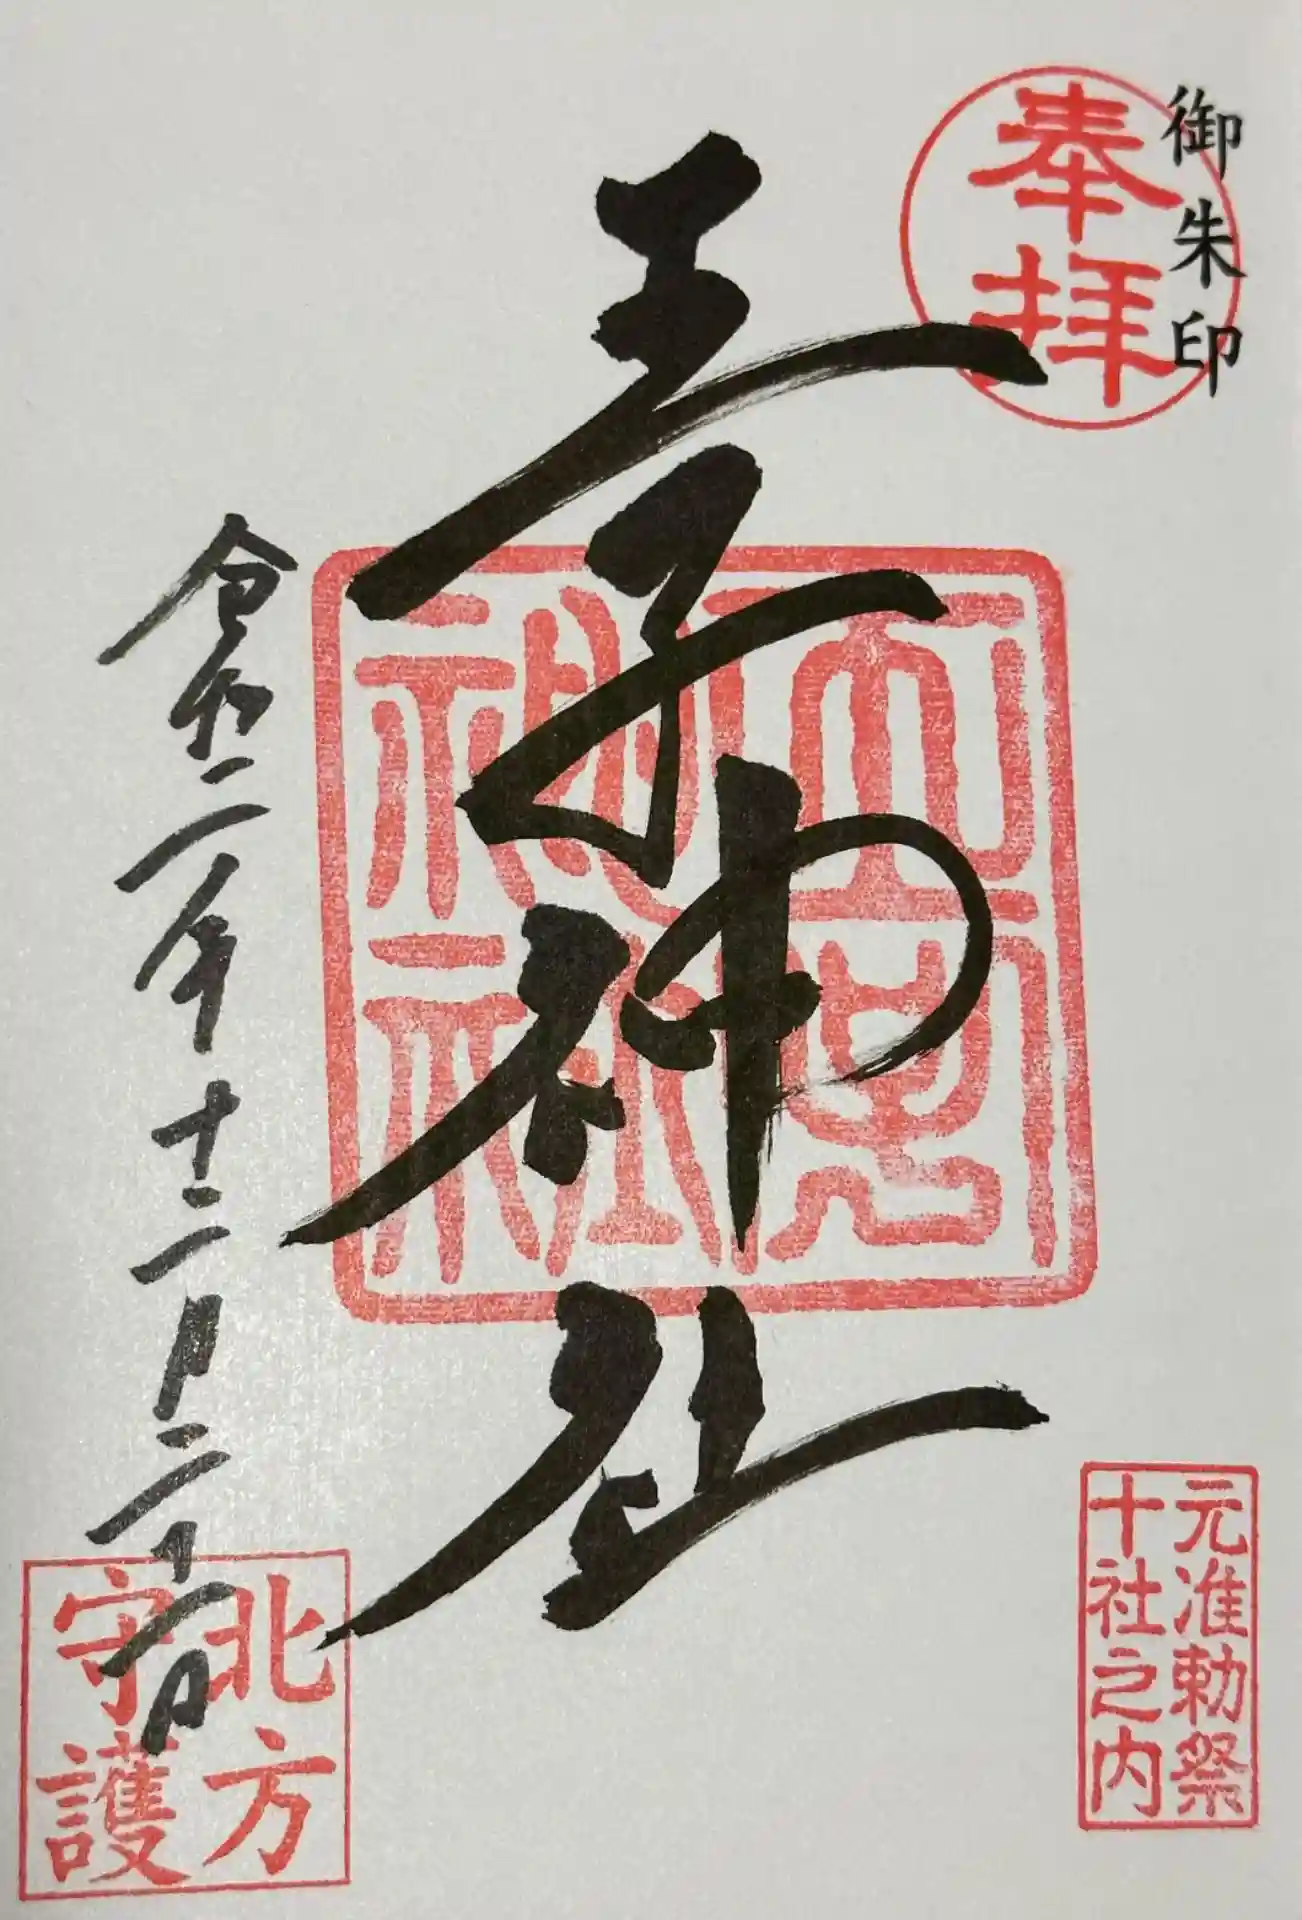 御朱印
奉拝
王子神社
元准勅祭
十社之内
令和二年十二月二十一日
北方
守護